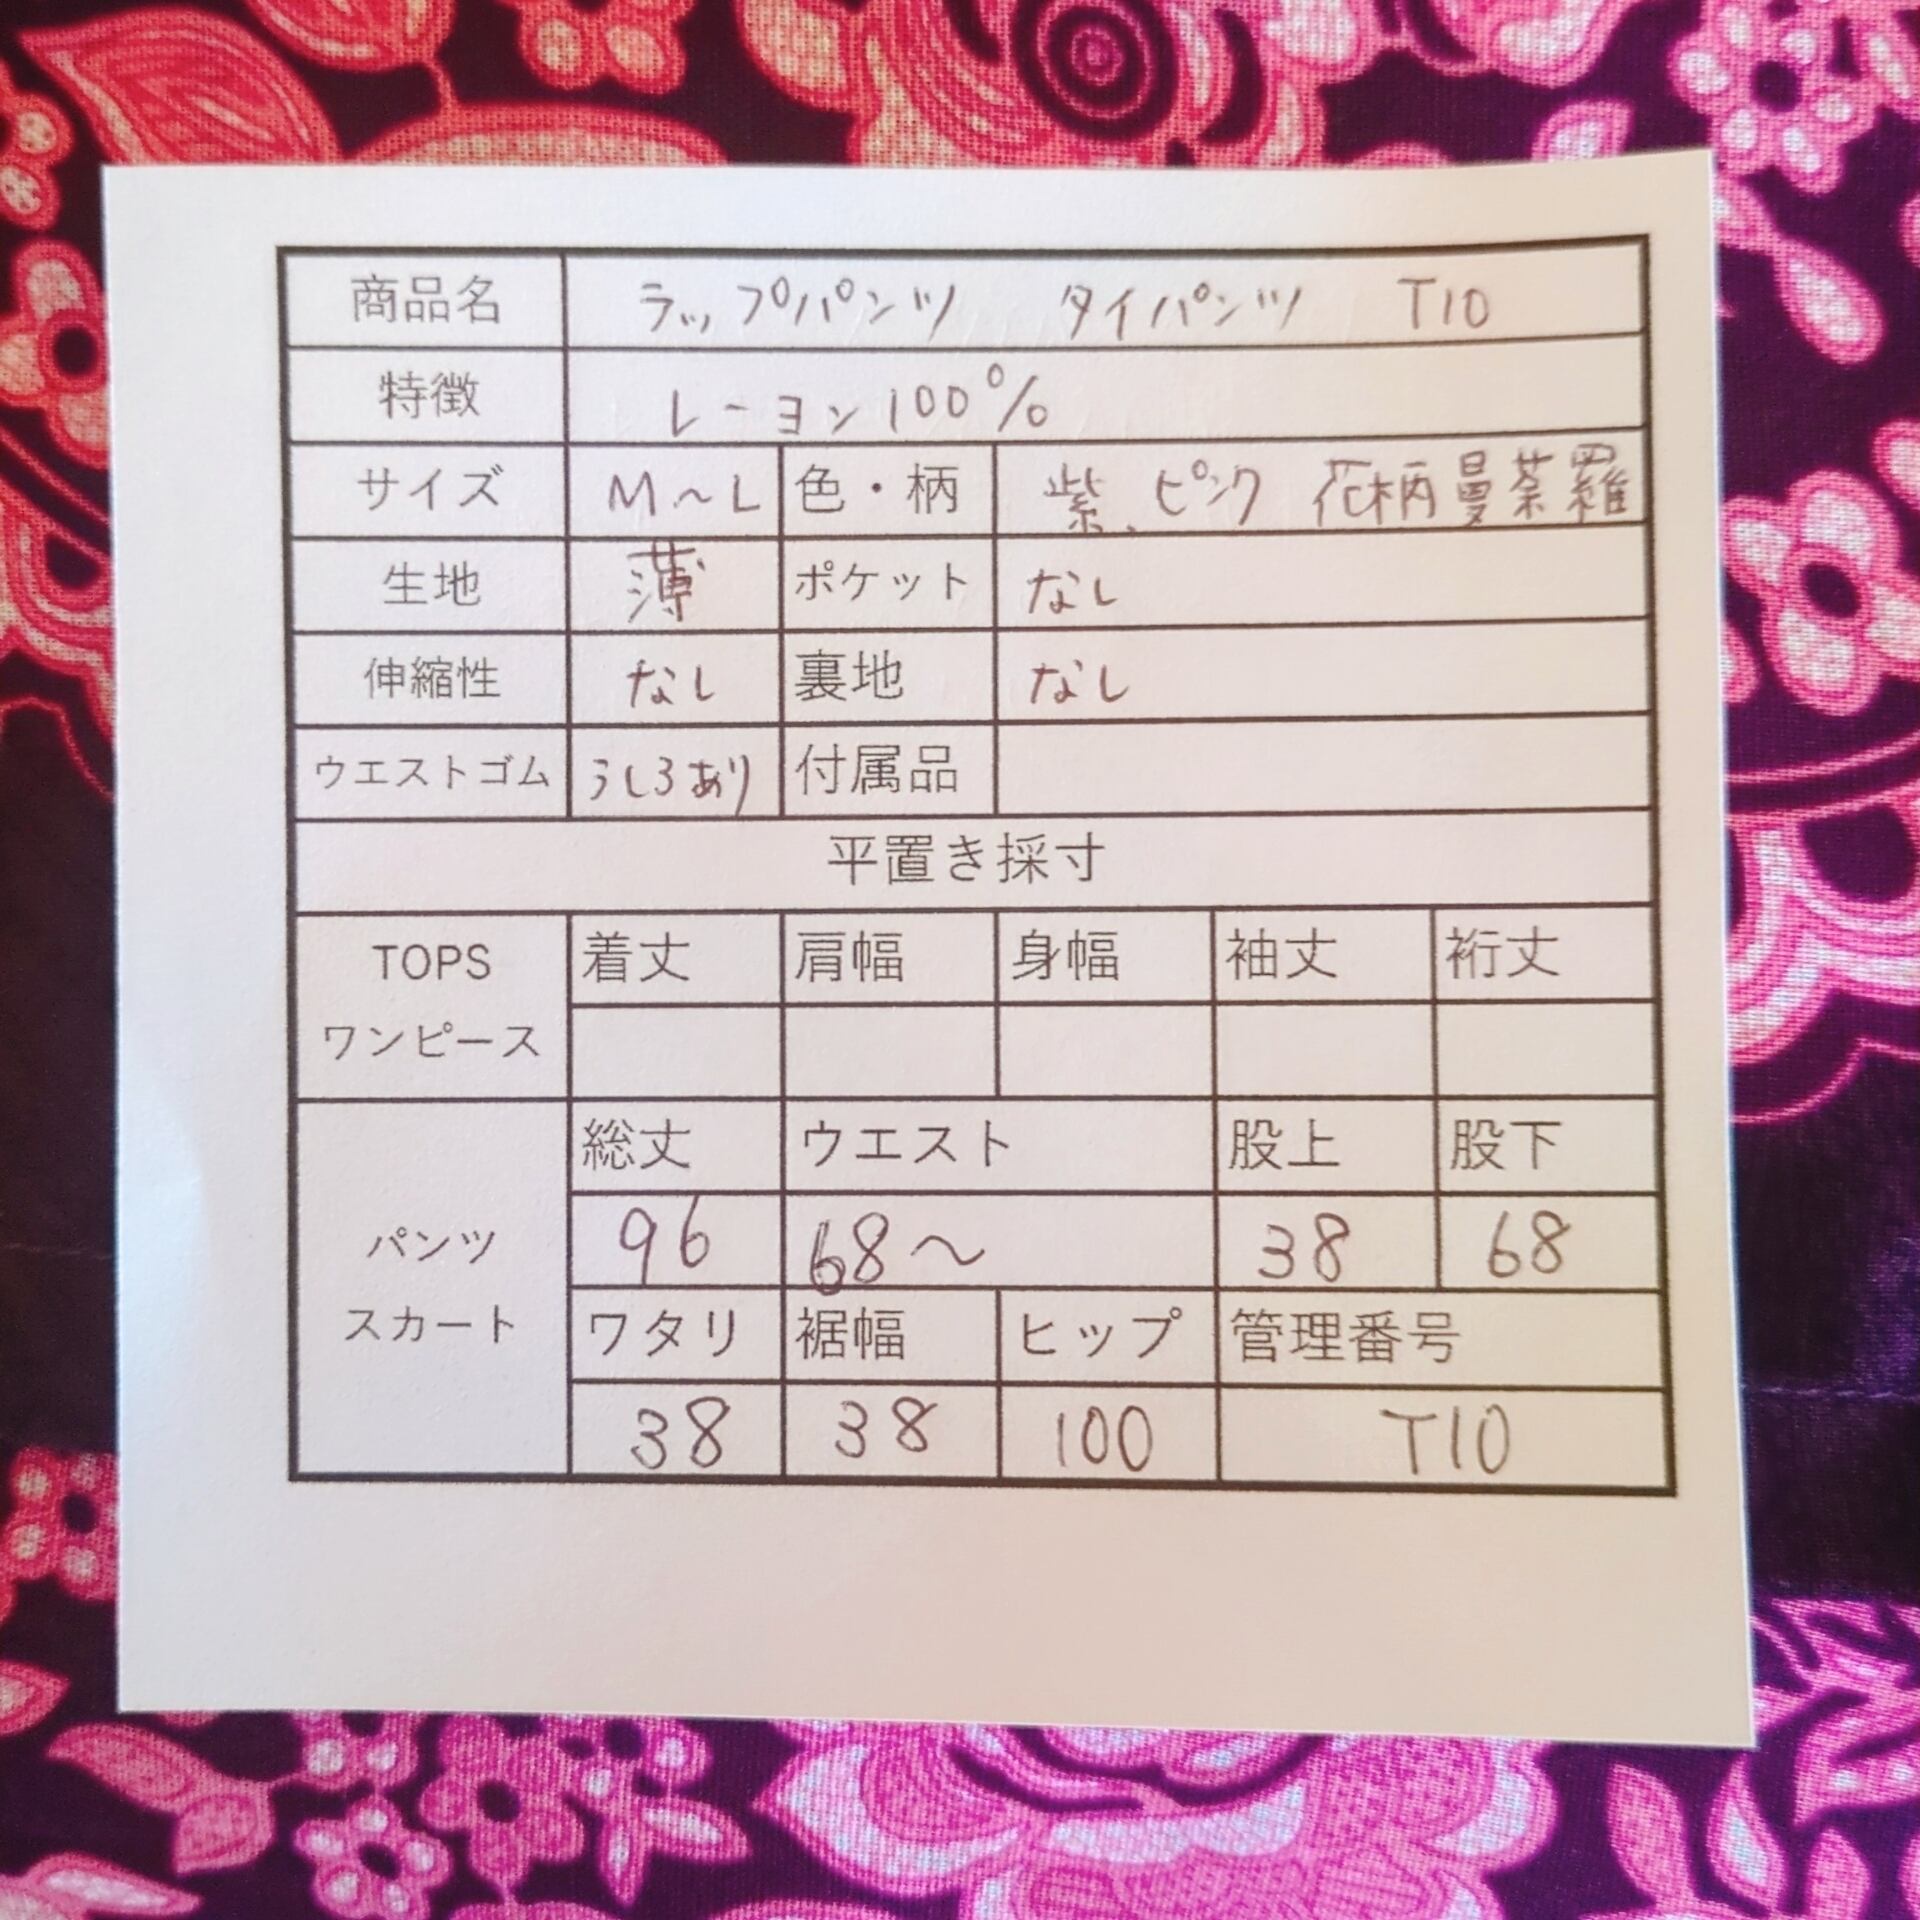 商品名 ラップパンツ タイパンツ T10
特徴 レーヨン100%
サイズ M〜L 色・柄 紫、ピンク 花柄曼荼羅
生地 薄 ポケット なし
伸縮性 なし 裏地 なし
ウエストゴム うしろあり 付属品
平置き採寸
TOPS 着丈 肩幅 身幅 袖丈 裄丈
ワンピース
総丈 ウエスト 股上 股下
パンツ 96 68〜 38 68
スカート ワタリ 裾幅 ヒップ 管理番号
38 38 100 T10